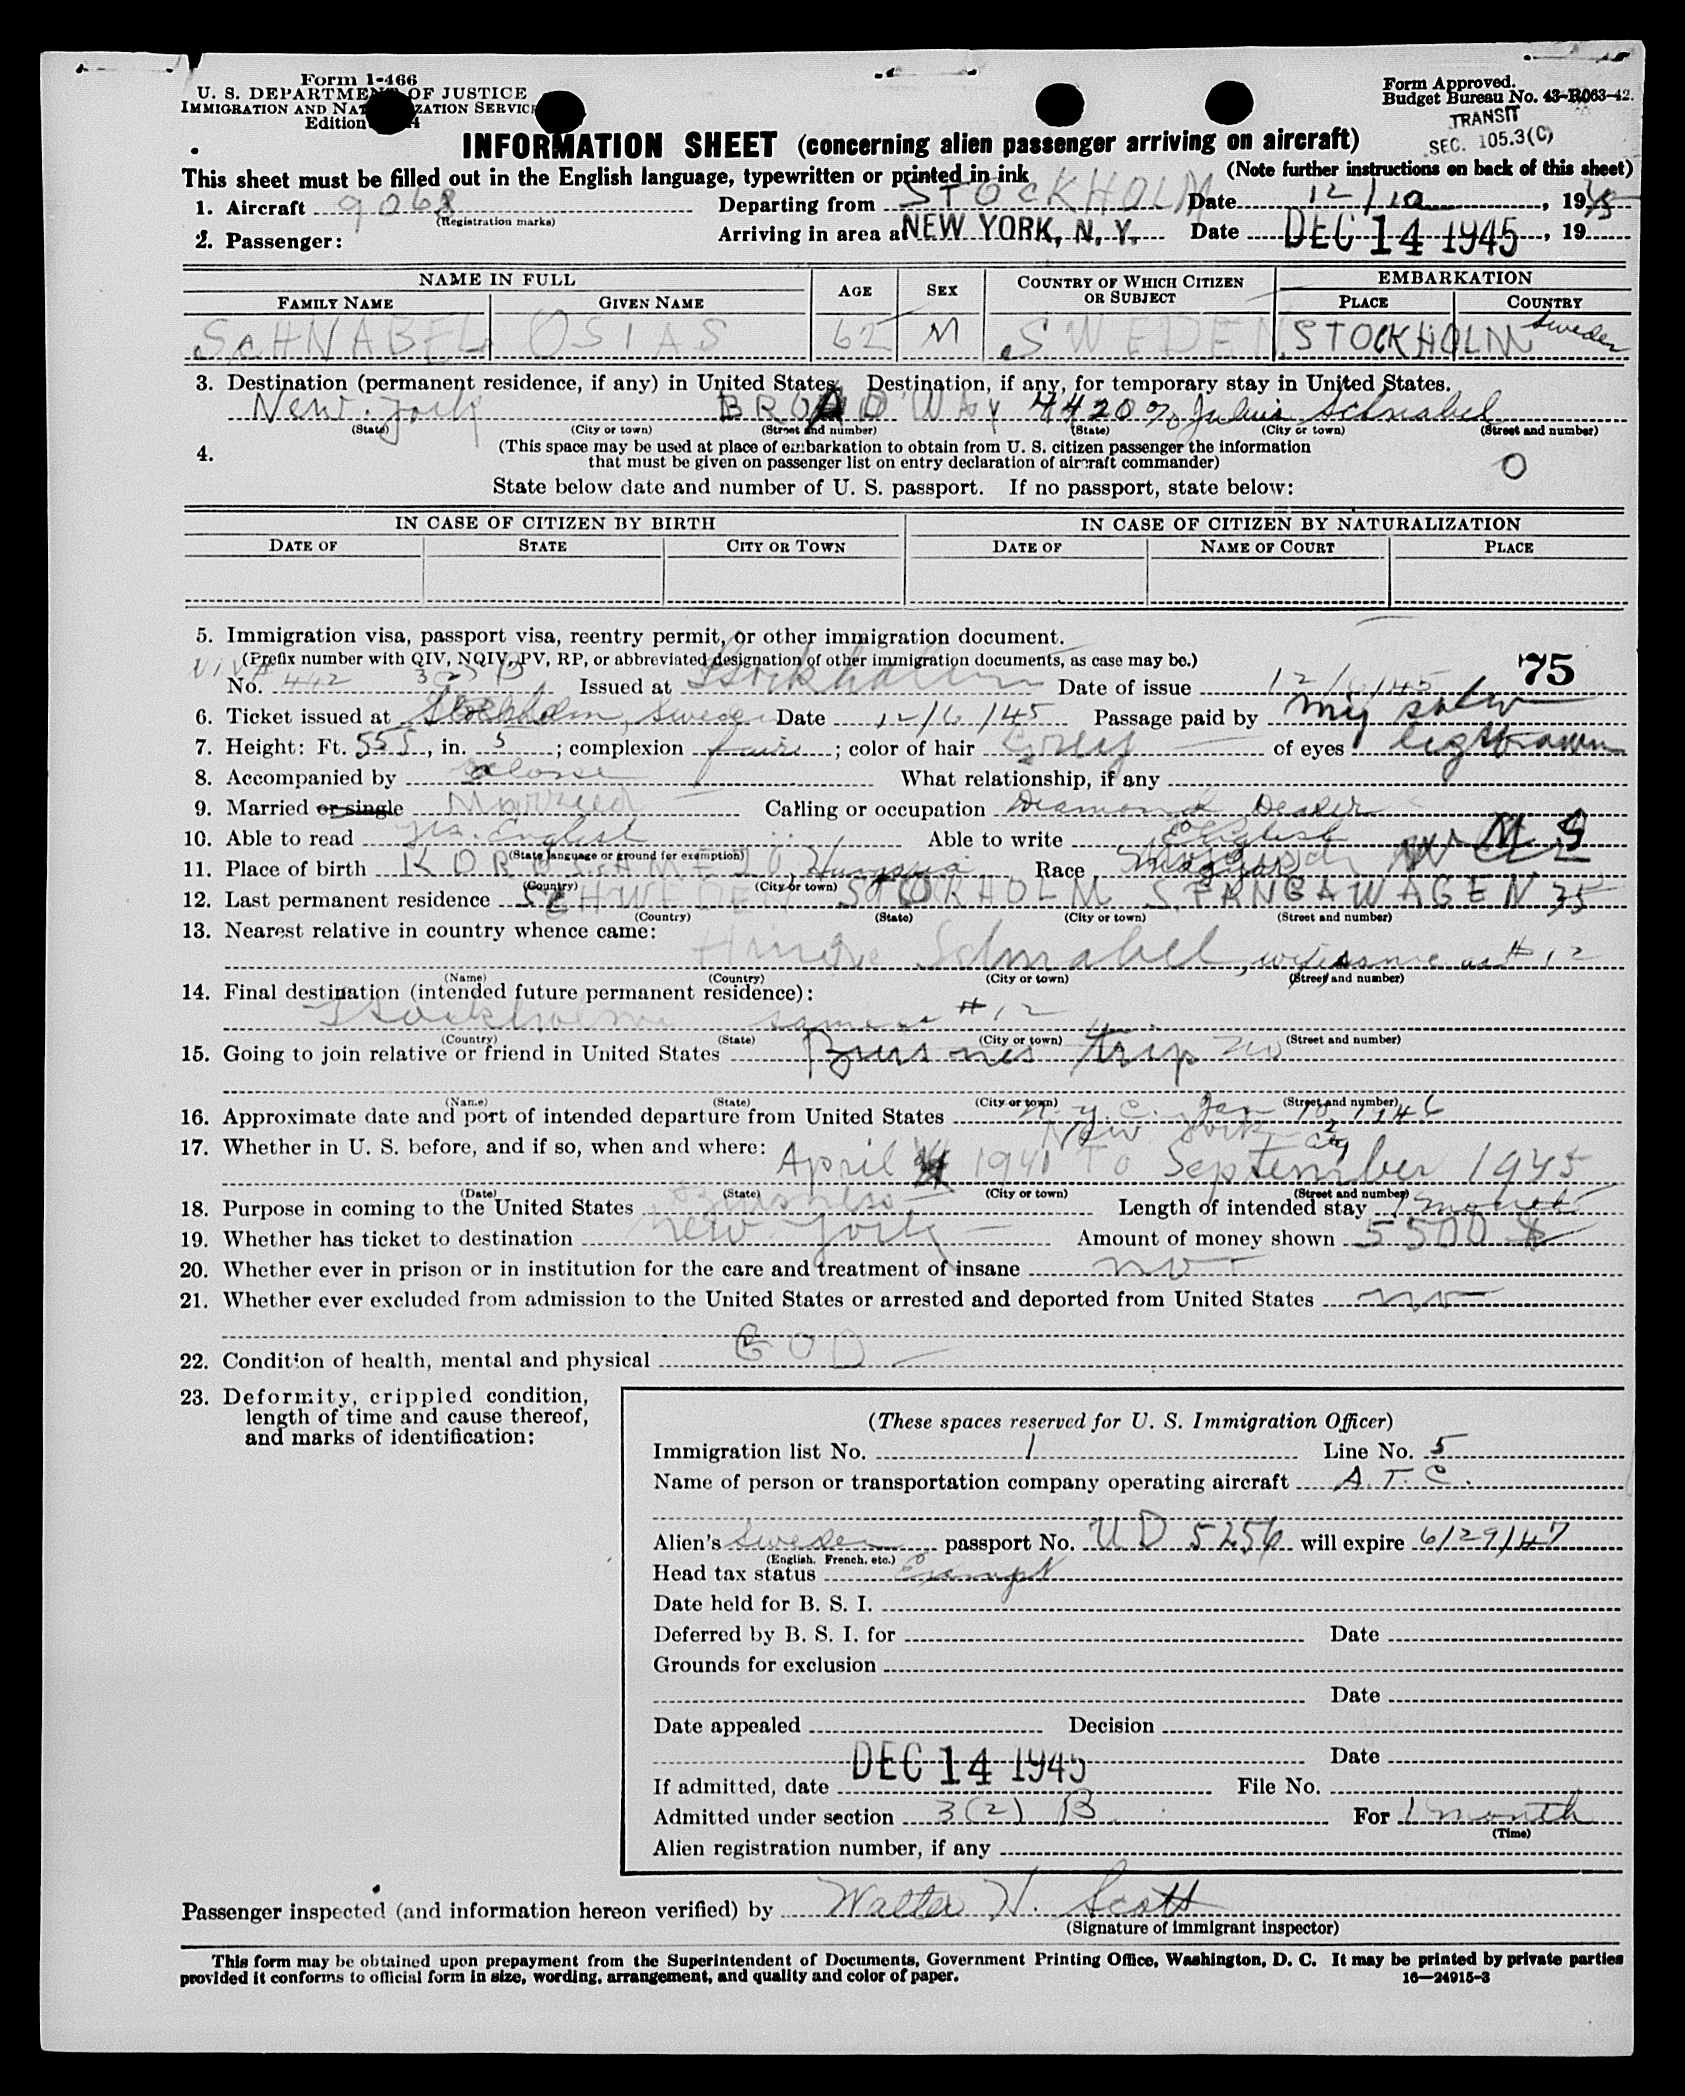 Form I-466
U. S. DEPARTMENT OF JUSTICE
IMMIGRATION AND NATURALIZATION SERVICE
Edition
Form Approved.
Budget Bureau No. 43-R063-42.
TRANSIT
SEC. 105.3(C)
INFORMATION SHEET (concerning alien passenger arriving on aircraft)
This sheet must be filled out in the English language, typewritten or printed in ink (Note further instructions on back of this sheet)
1. Aircraft 9068 Departing from STOCKHOLM Date 12/10, 1945
(Registration marks)
2. Passenger: Arriving in area at NEW YORK, N. Y. Date DEC 14 1945, 19
NAME IN FULL AGE SEX COUNTRY OF WHICH CITIZEN OR SUBJECT EMBARKATION
FAMILY NAME GIVEN NAME PLACE COUNTRY
SCHNABEL OSIAS 62 M SWEDEN STOCKHOLM Sweden
3. Destination (permanent residence, if any) in United States. Destination, if any, for temporary stay in United States.
New York BROADWAY 4420 % Julius Schnabel
(State) (City or town) (Street and number) (State) (City or town) (Street and number)
4. (This space may be used at place of embarkation to obtain from U. S. citizen passenger the information
that must be given on passenger list on entry declaration of aircraft commander)
0
State below date and number of U. S. passport. If no passport, state below:
IN CASE OF CITIZEN BY BIRTH IN CASE OF CITIZEN BY NATURALIZATION
DATE OF STATE CITY OR TOWN DATE OF NAME OF COURT PLACE
5. Immigration visa, passport visa, reentry permit, or other immigration document.
(Prefix number with QIV, NQIV, PV, RP, or abbreviated designation of other immigration documents, as case may be.)
75
No. 442 Issued at Stockholm Date of issue 12/6/45
6. Ticket issued at Stockholm, Sweden Date 12/6/45 Passage paid by my
7. Height: Ft. 5, in. 5; complexion fair; color of hair Grey of eyes
8. Accompanied by alone What relationship, if any
9. Married or single Married Calling or occupation Diamond Dealer
10. Able to read Yes. English Able to write English
(State language or ground for exemption)
11. Place of birth KOROSMEZO, Hungaria Race Magyar
(Country) (City or town)
12. Last permanent residence SCHWEDEN STOCKHOLM SPANGAWAGEN 35
(Country) (State) (City or town) (Street and number)
13. Nearest relative in country whence came:
Schnabel, wife same as # 12
(Name) (Country) (City or town) (Street and number)
14. Final destination (intended future permanent residence):
Stockholm same as # 12
(Country) (State) (City or town) (Street and number)
15. Going to join relative or friend in United States Busines trip no
(Name) (State) (City or town) (Street and number)
16. Approximate date and port of intended departure from United States N.Y.C. Jan 10, 1946
New York City
17. Whether in U. S. before, and if so, when and where: April 1941 To September 1945
(Date) (State) (City or town) (Street and number)
18. Purpose in coming to the United States Business Length of intended stay 1 month
19. Whether has ticket to destination New York Amount of money shown 5500 $
20. Whether ever in prison or in institution for the care and treatment of insane no
21. Whether ever excluded from admission to the United States or arrested and deported from United States no
22. Condition of health, mental and physical GOD
23. Deformity, crippled condition,
length of time and cause thereof,
and marks of identification:
(These spaces reserved for U. S. Immigration Officer)
Immigration list No. 1 Line No. 5
Name of person or transportation company operating aircraft A.T.C.
Alien's Sweden passport No. UD 5256 will expire 6/29/47
(English, French, etc.)
Head tax status Exempt
Date held for B. S. I.
Deferred by B. S. I. for Date
Grounds for exclusion
Date
Date appealed Decision
Date
If admitted, date DEC 14 1945 File No.
Admitted under section 3(2) B For 1 month
(Time)
Alien registration number, if any
Passenger inspected (and information hereon verified) by Walter H. Scott
(Signature of immigrant inspector)
This form may be obtained upon prepayment from the Superintendent of Documents, Government Printing Office, Washington, D. C. It may be printed by private parties
provided it conforms to official form in size, wording, arrangement, and quality and color of paper. 16—24915-3